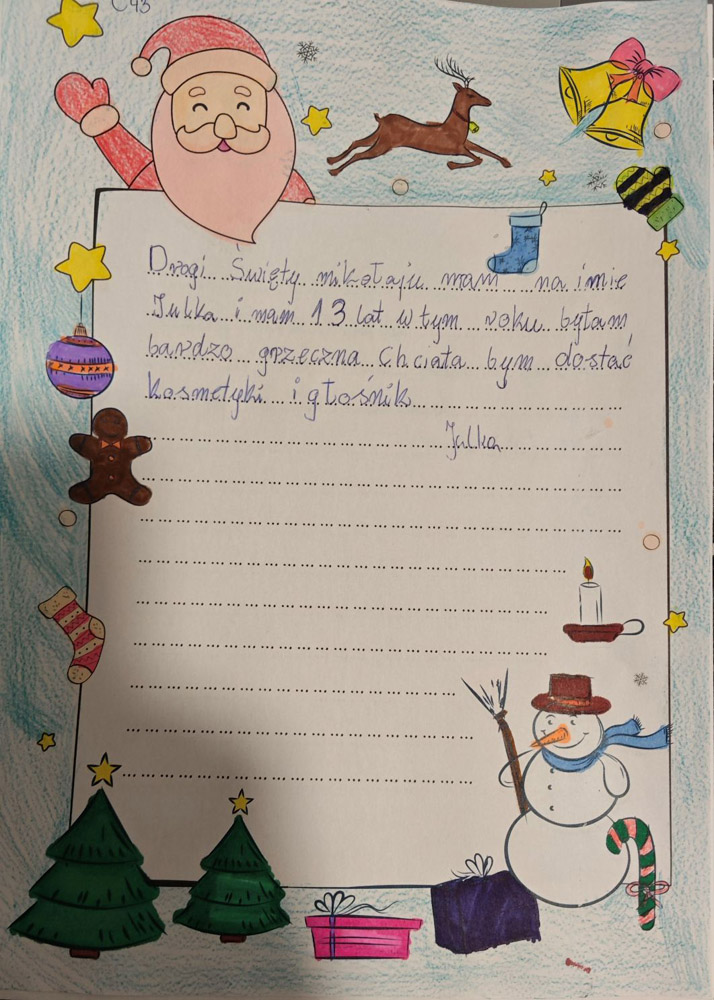 C43
Drogi Święty mikołaju mam na imie
Julka i mam 13 lat w tym roku byłam
bardzo grzeczna chciała bym dostać
kosmetyki i głośnik
Julka